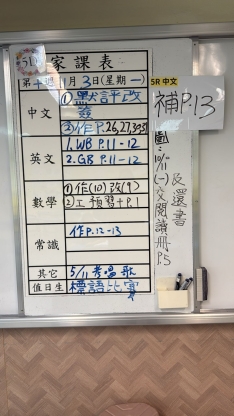 5I 家課表
第十週11月3日(星期一)
5R 中文
補P.13
中文
①默評改
簽
②作P.26,27,
英文
1.WB P.11-12
2.GB P.11-12
數學
①作(10)改(9)
②工預習+P.1
常識
作P.12-13
其它
5/11考唱歌
值日生
標語比賽
圖:
10/11
(一)交閱讀冊P.5
反還書